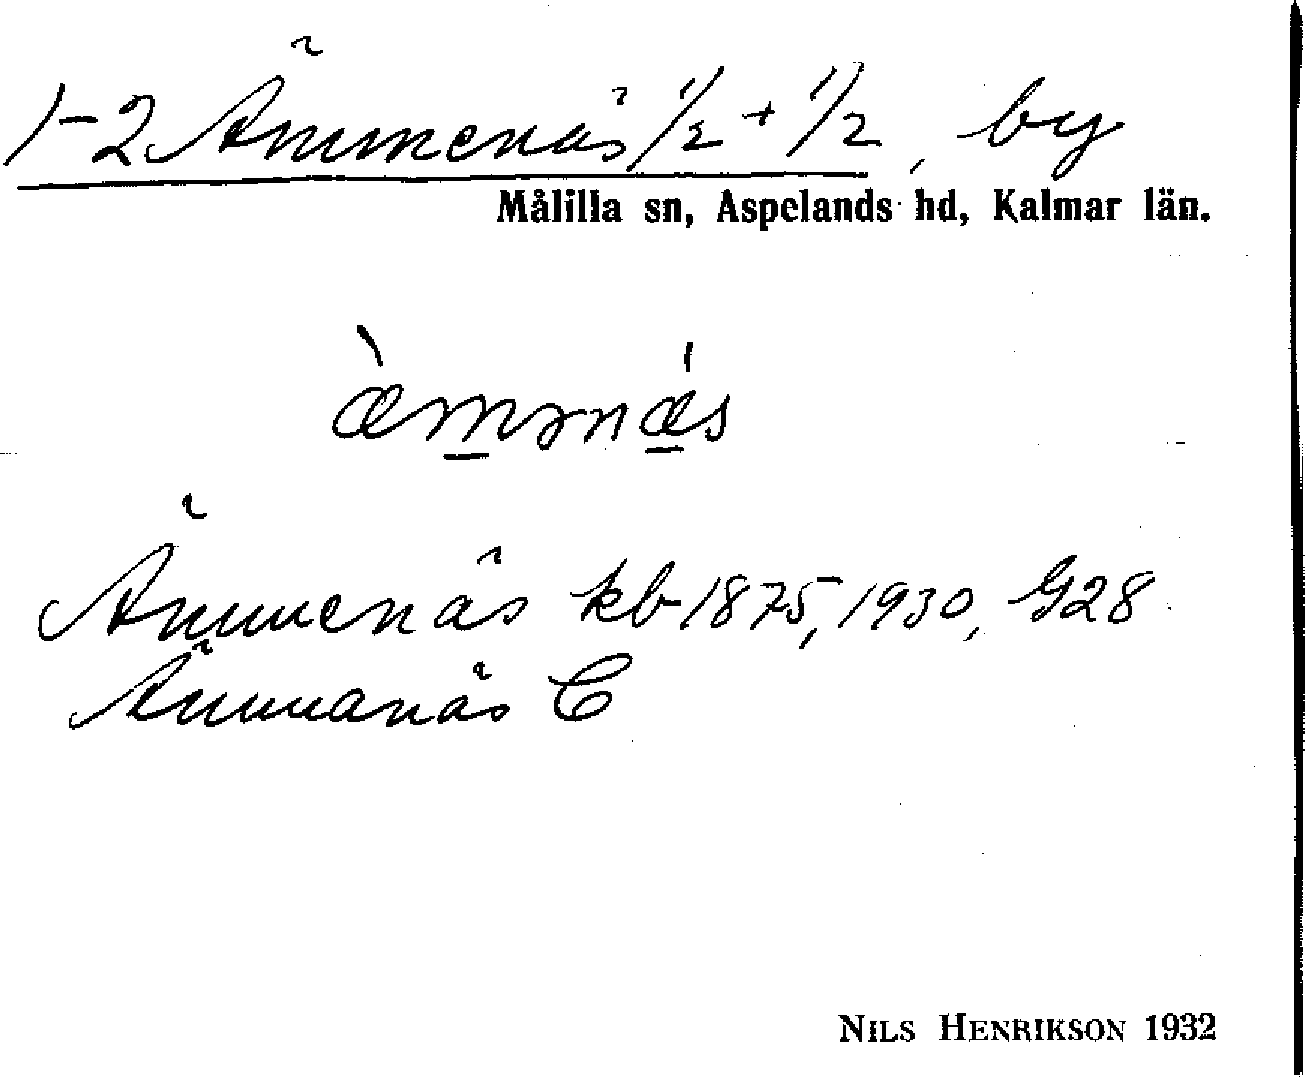 1-2 Ämmenäs ½ + ½, by
Målilla sn, Aspelands hd, Kalmar län.
æ̀mənǽs
Ämmenäs kb 1875, 1930, G28
Ämmanäs C
NILS HENRIKSON 1932